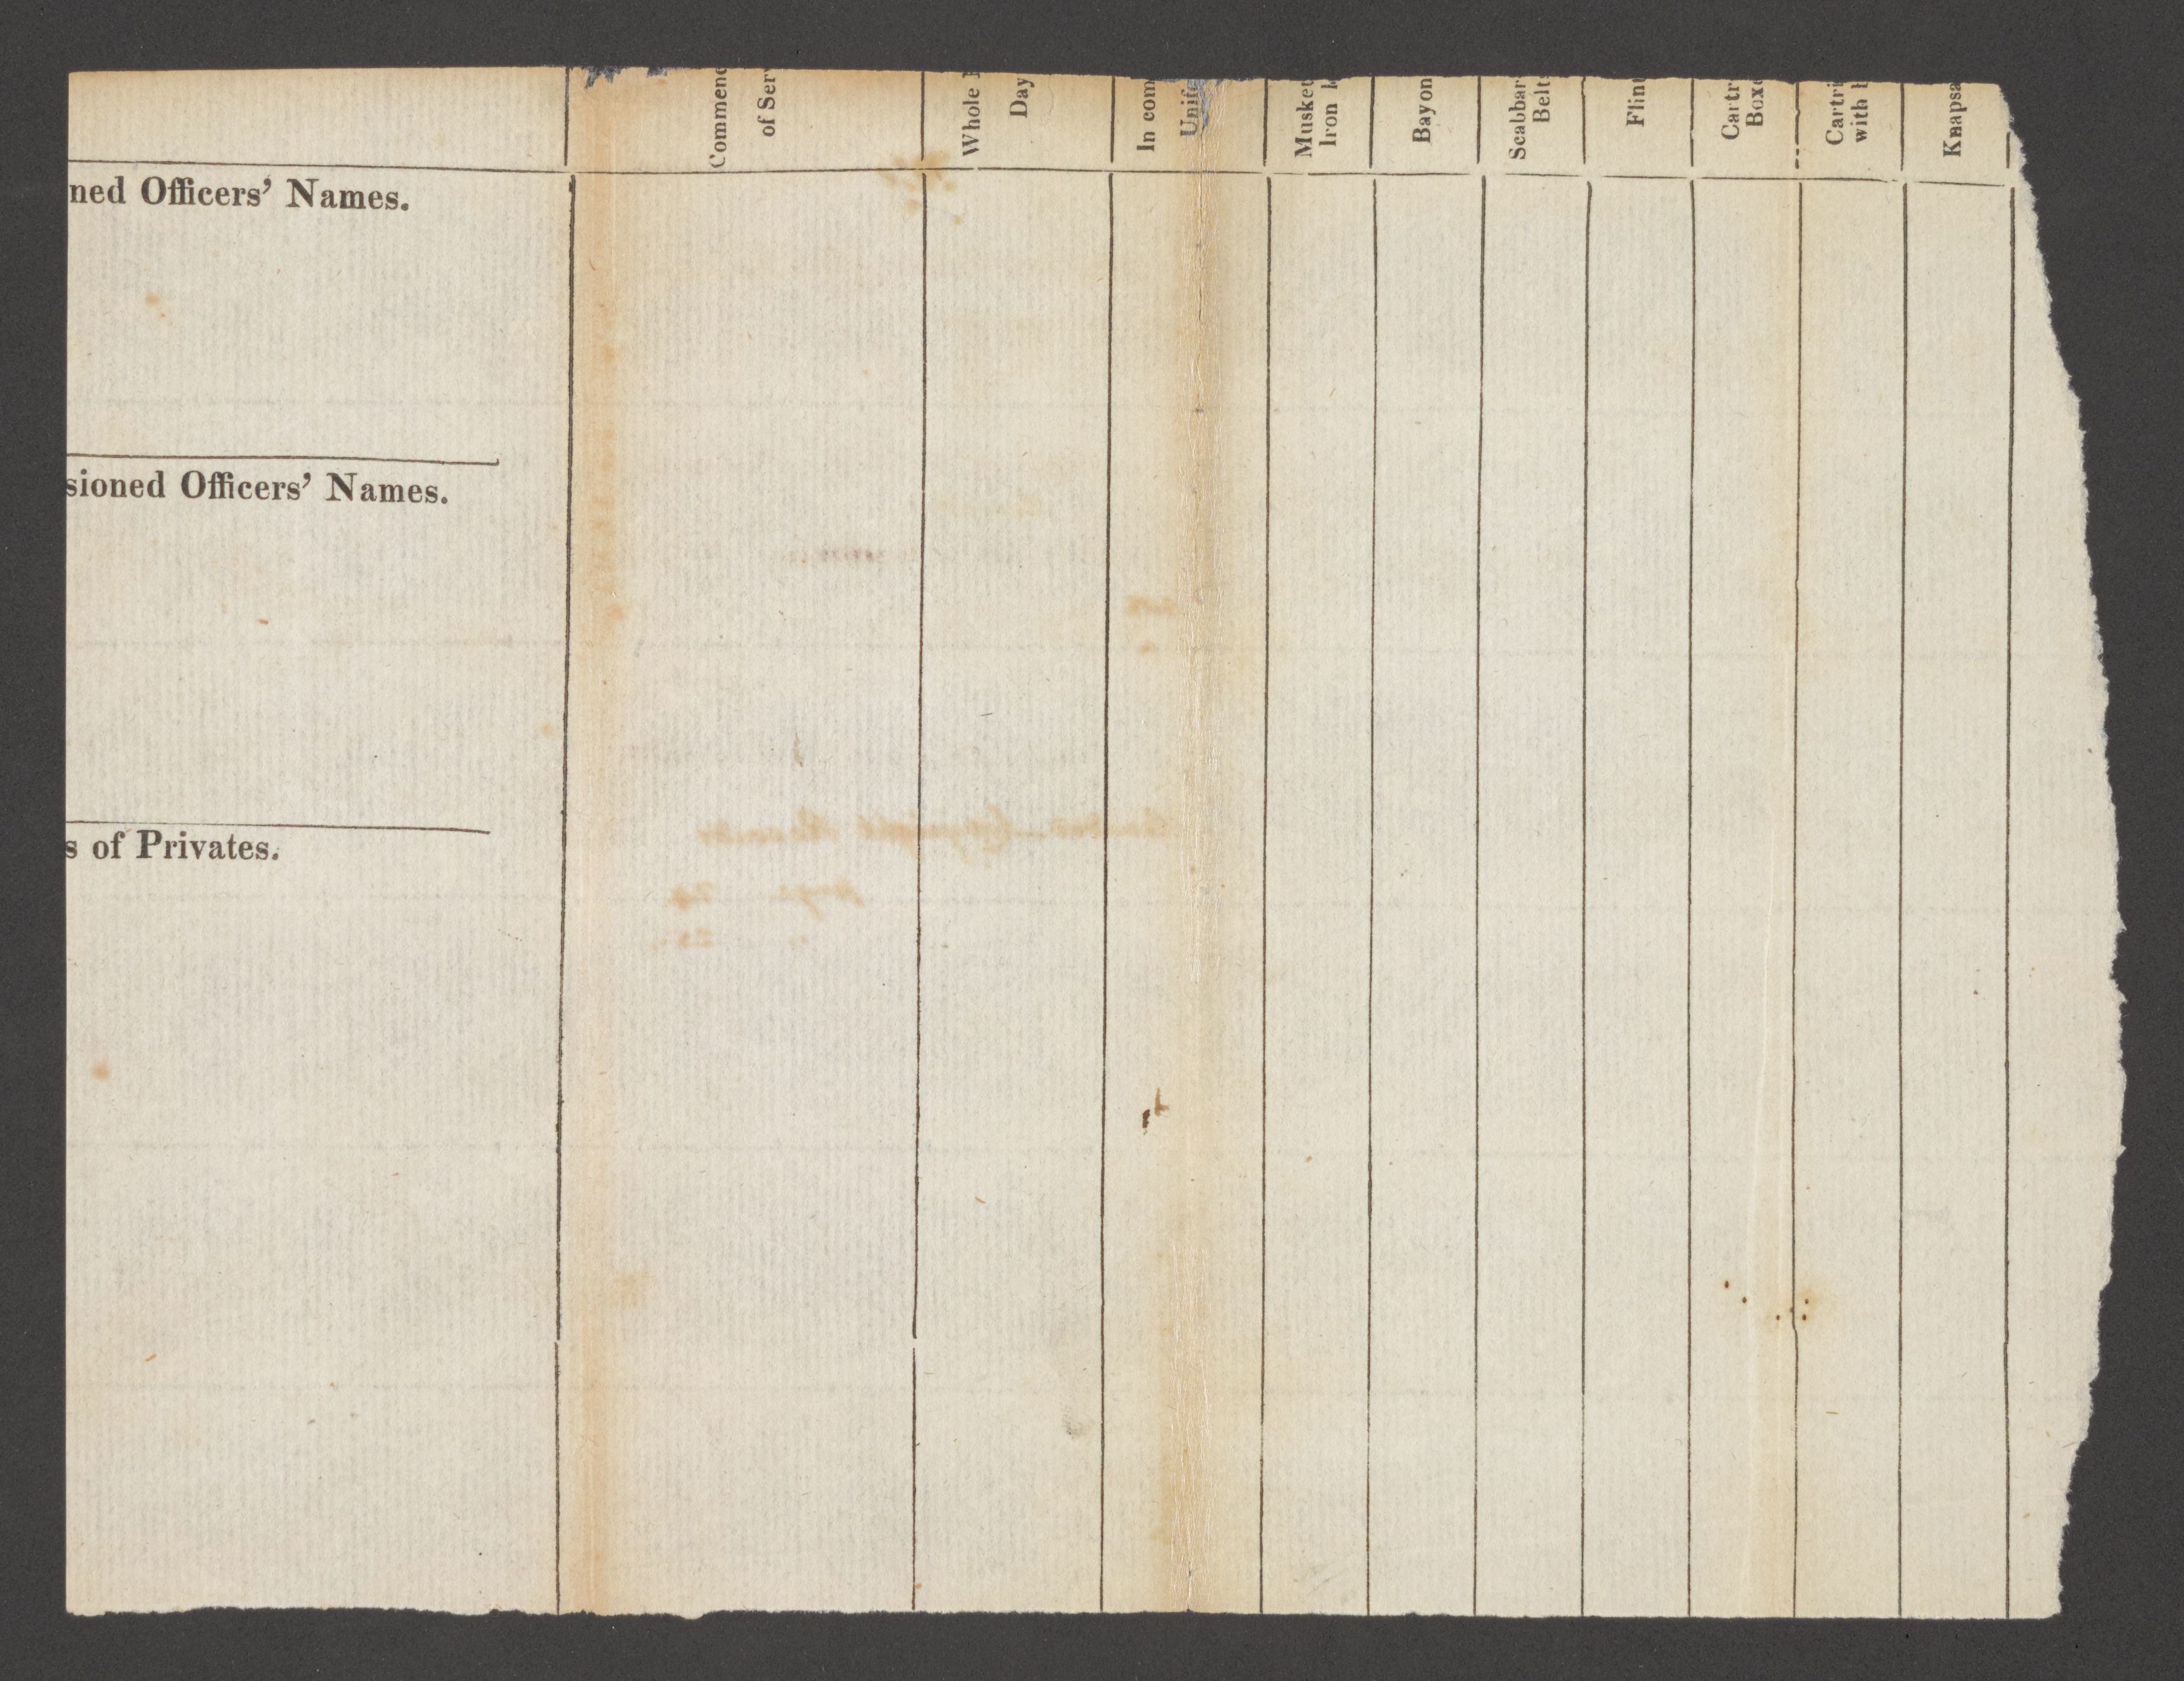 Commenc
of Serv
Whole
Day
In com
Unifo
Musket
Iron
Bayon
Scabbar
Belt
Flint
Cartr
Boxe
Cartri
with
Knapsa
ned Officers' Names.
sioned Officers' Names.
s of Privates.